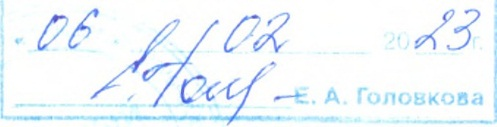 "06" 02 2023 г.
Е. А. Головкова